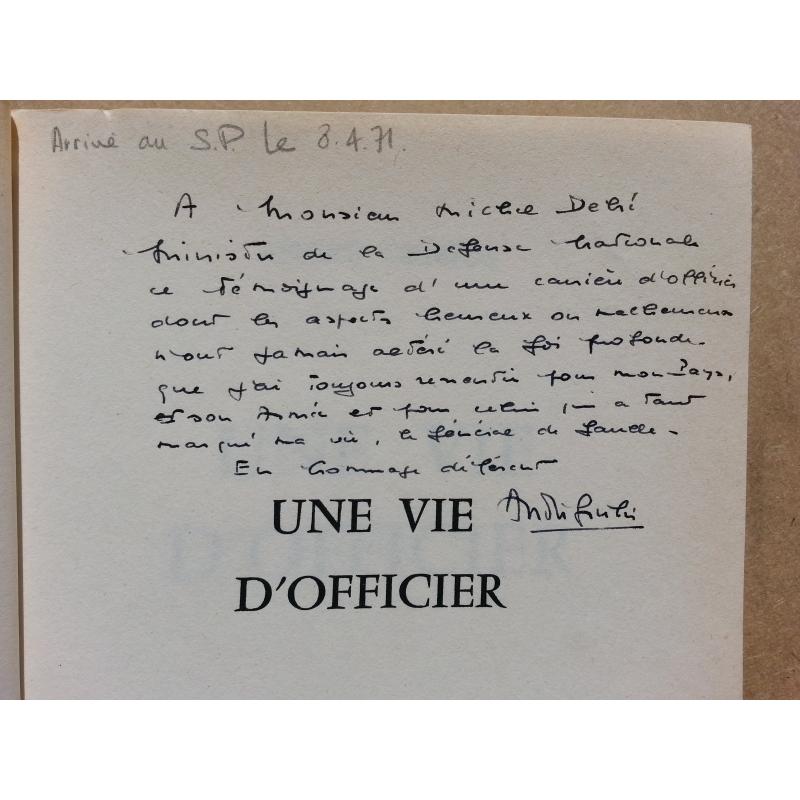 Arrivé au S.P. le 8.4.71.
A Monsieur Michel Debré
Ministre de la Défense Nationale
ce témoignage d'une carrière d'officier
dont les aspects heureux ou malheureux
n'ont jamais altéré la foi profonde
que j'ai toujours ressentie pour mon Pays,
et son Armée et pour celui qui a tant
marqué ma vie, le Général de Gaulle.
En hommage déférent
UNE VIE
D'OFFICIER